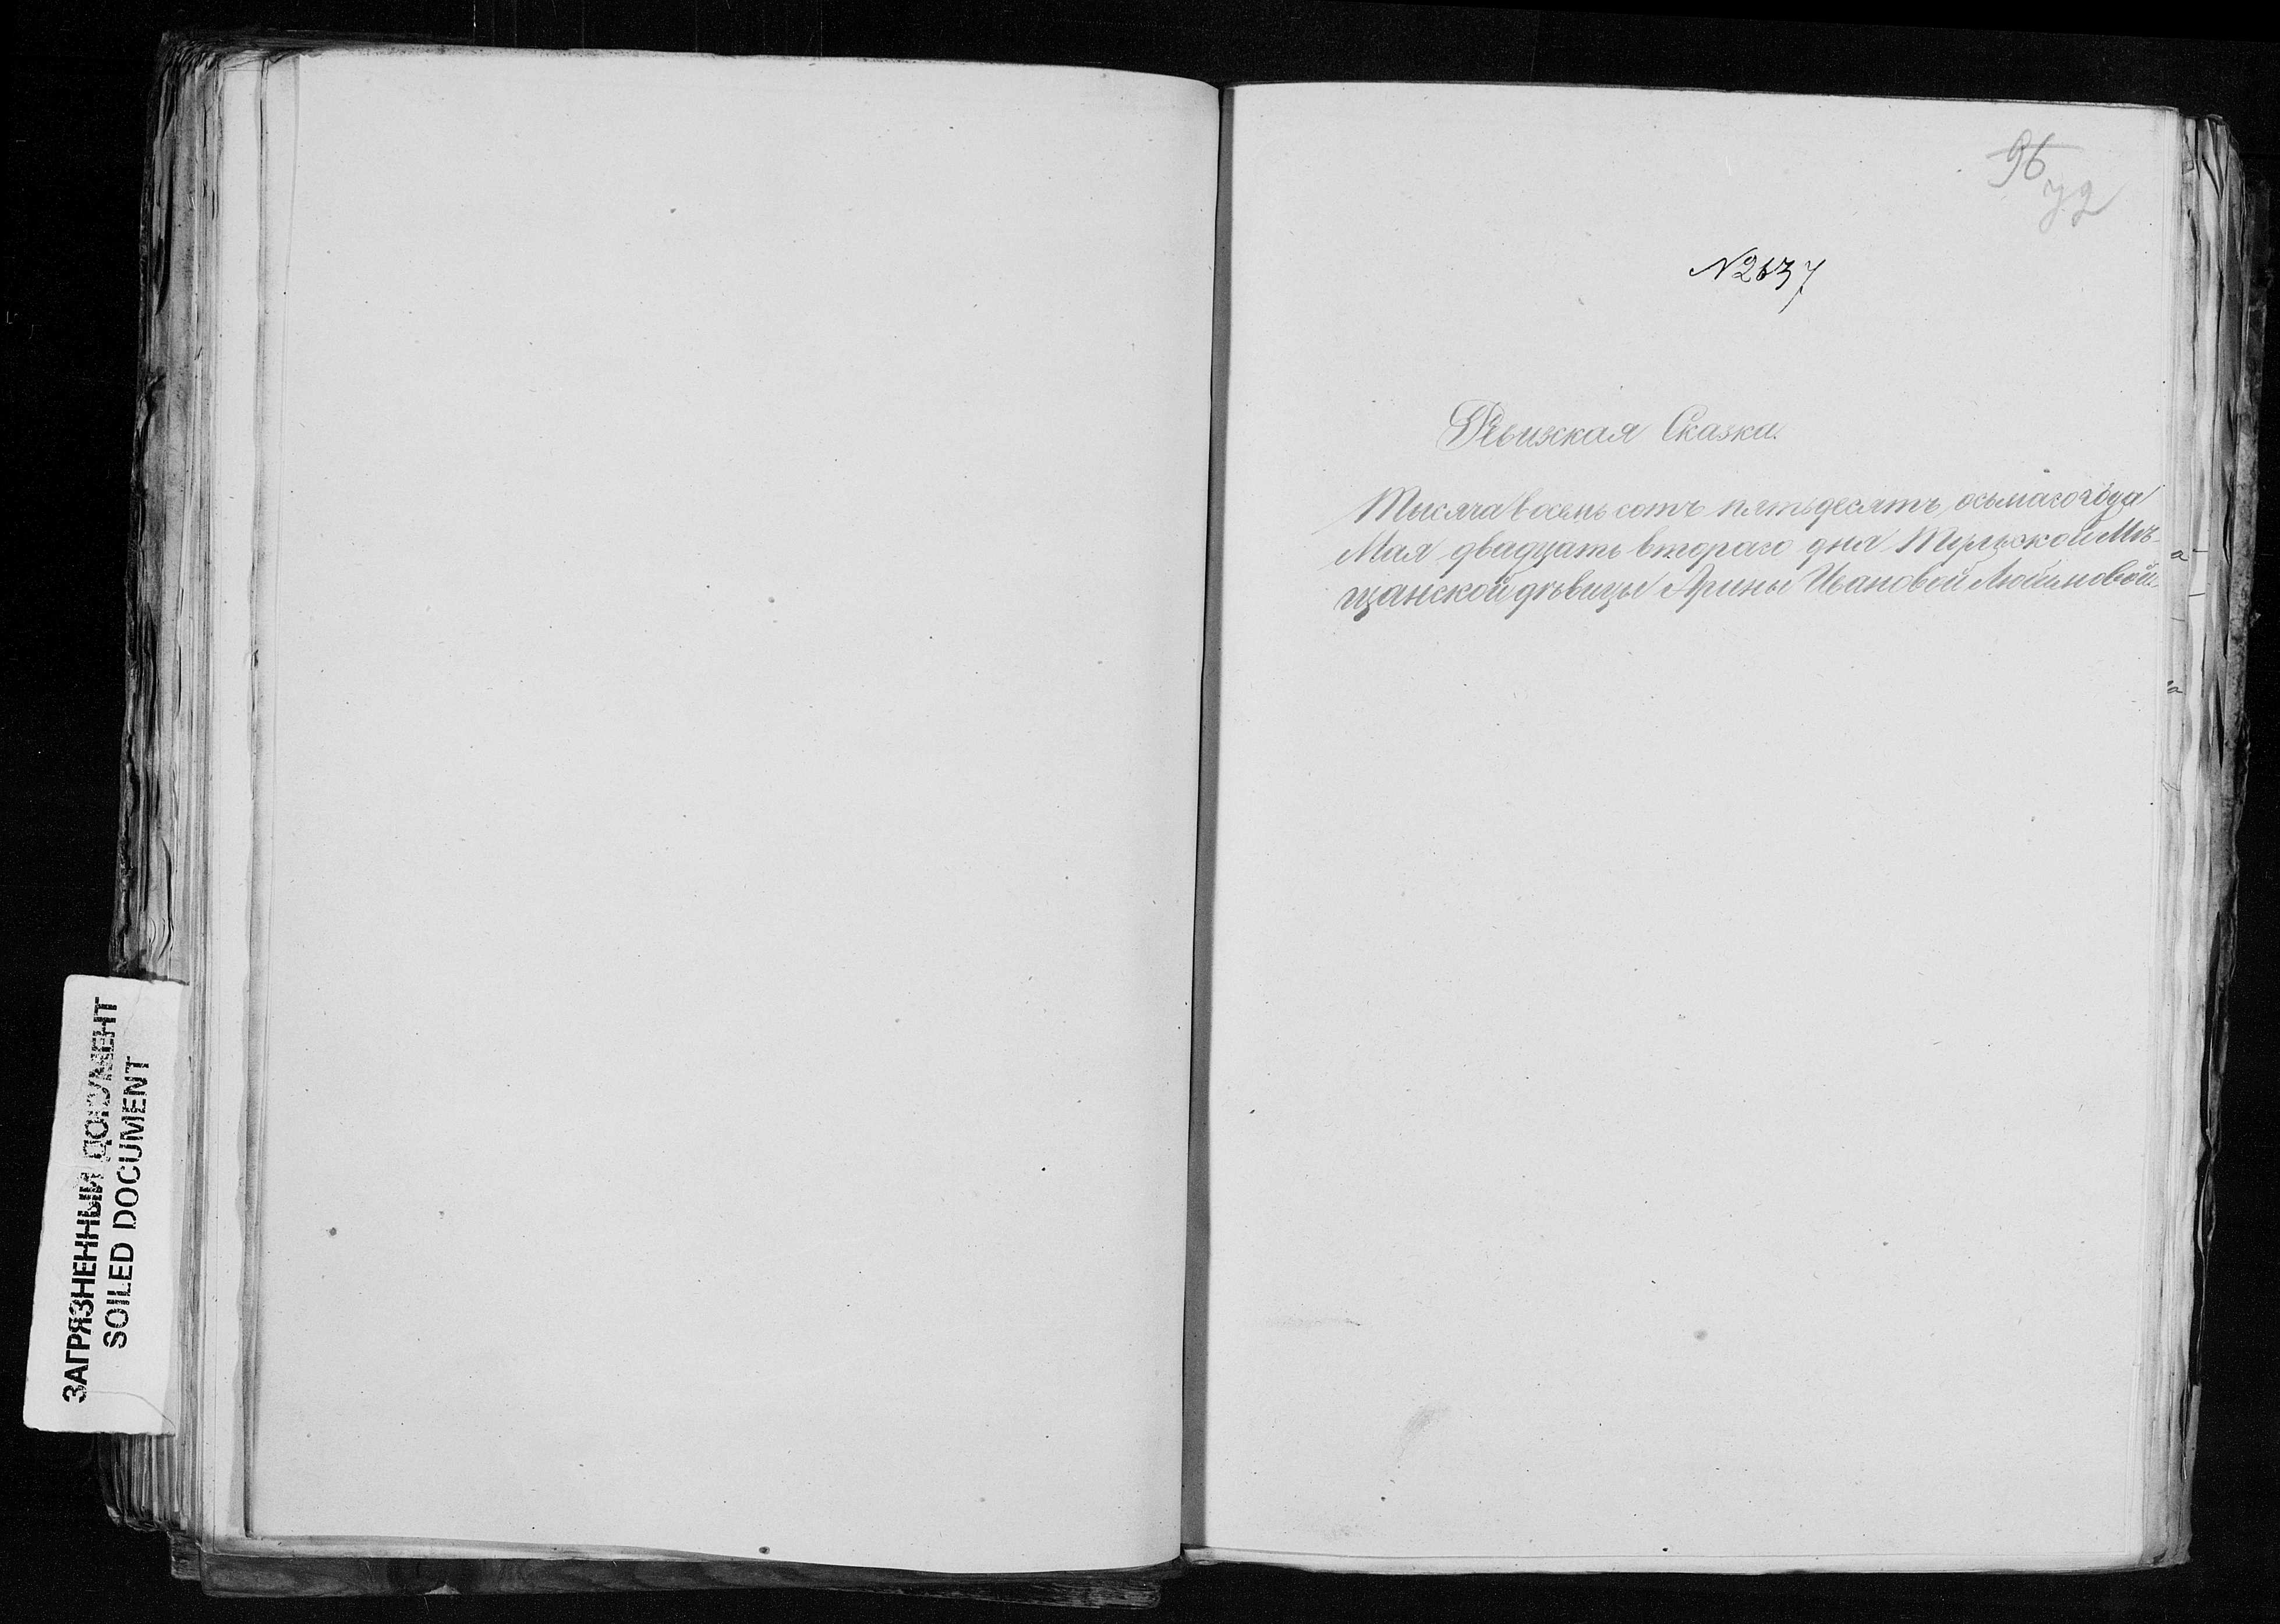 96
72
N2637
Ревижская Сказка.
Тысяча восемь сотъ пятьдесятъ осьмаго года
Мая двадцать втораго дня Тульской Мѣ-
щанской дѣвицы Арины Ивановой
ЗАГРЯЗНЕННЫЙ ДОКУМЕНТ
SOILED DOCUMENT